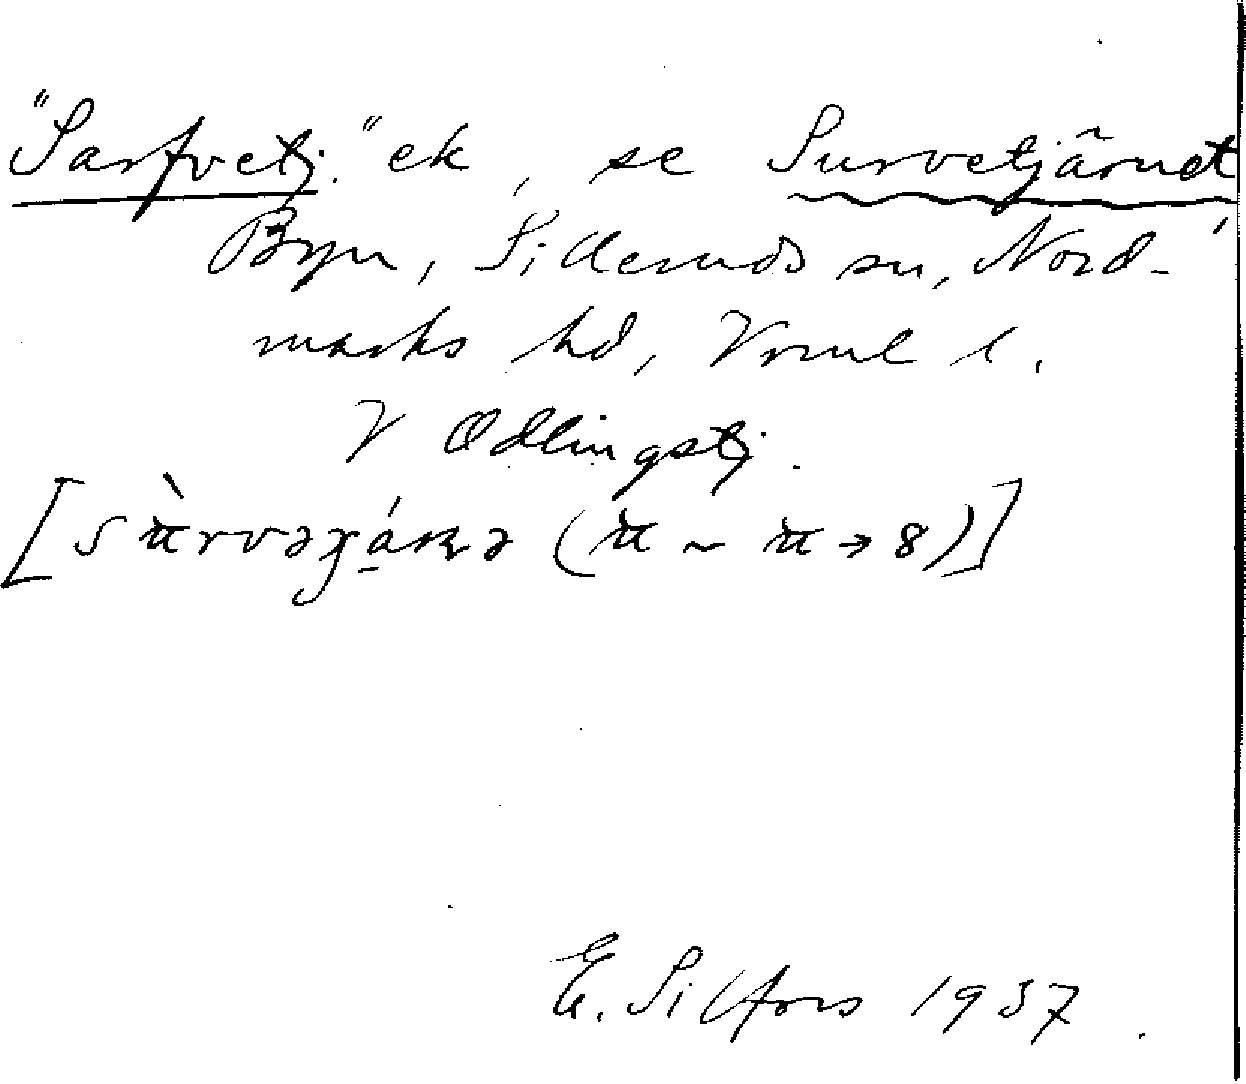 "Sarfvetj." ek, se Survetjärnet,
Byn, Silleruds sn, Nord-
marks hd, Vrml l.
V Ödlingstj.
E. Silfors 1937